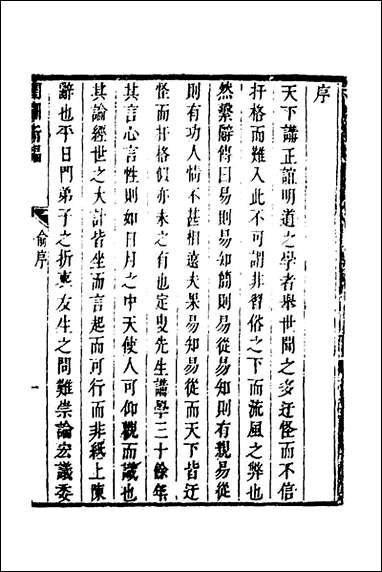 序
天下講正誼明道之學者舉世聞之多迂怪而不信
扞格而難入此不可謂非習俗之下而流風之弊也
然繫辭傳曰易則易知簡則易從易知則有親易從
則有功人情不甚相遠夫果易知易從而天下皆迂
怪而扞格似亦未之有也定叟先生講學三十餘年
其言心言性則如日月之中天使人可仰觀而識也
其論經世之大計皆坐而言起而可行而非紙上陳
辭也平日門弟子之折衷友生之問難崇論宏議委
俞序
一